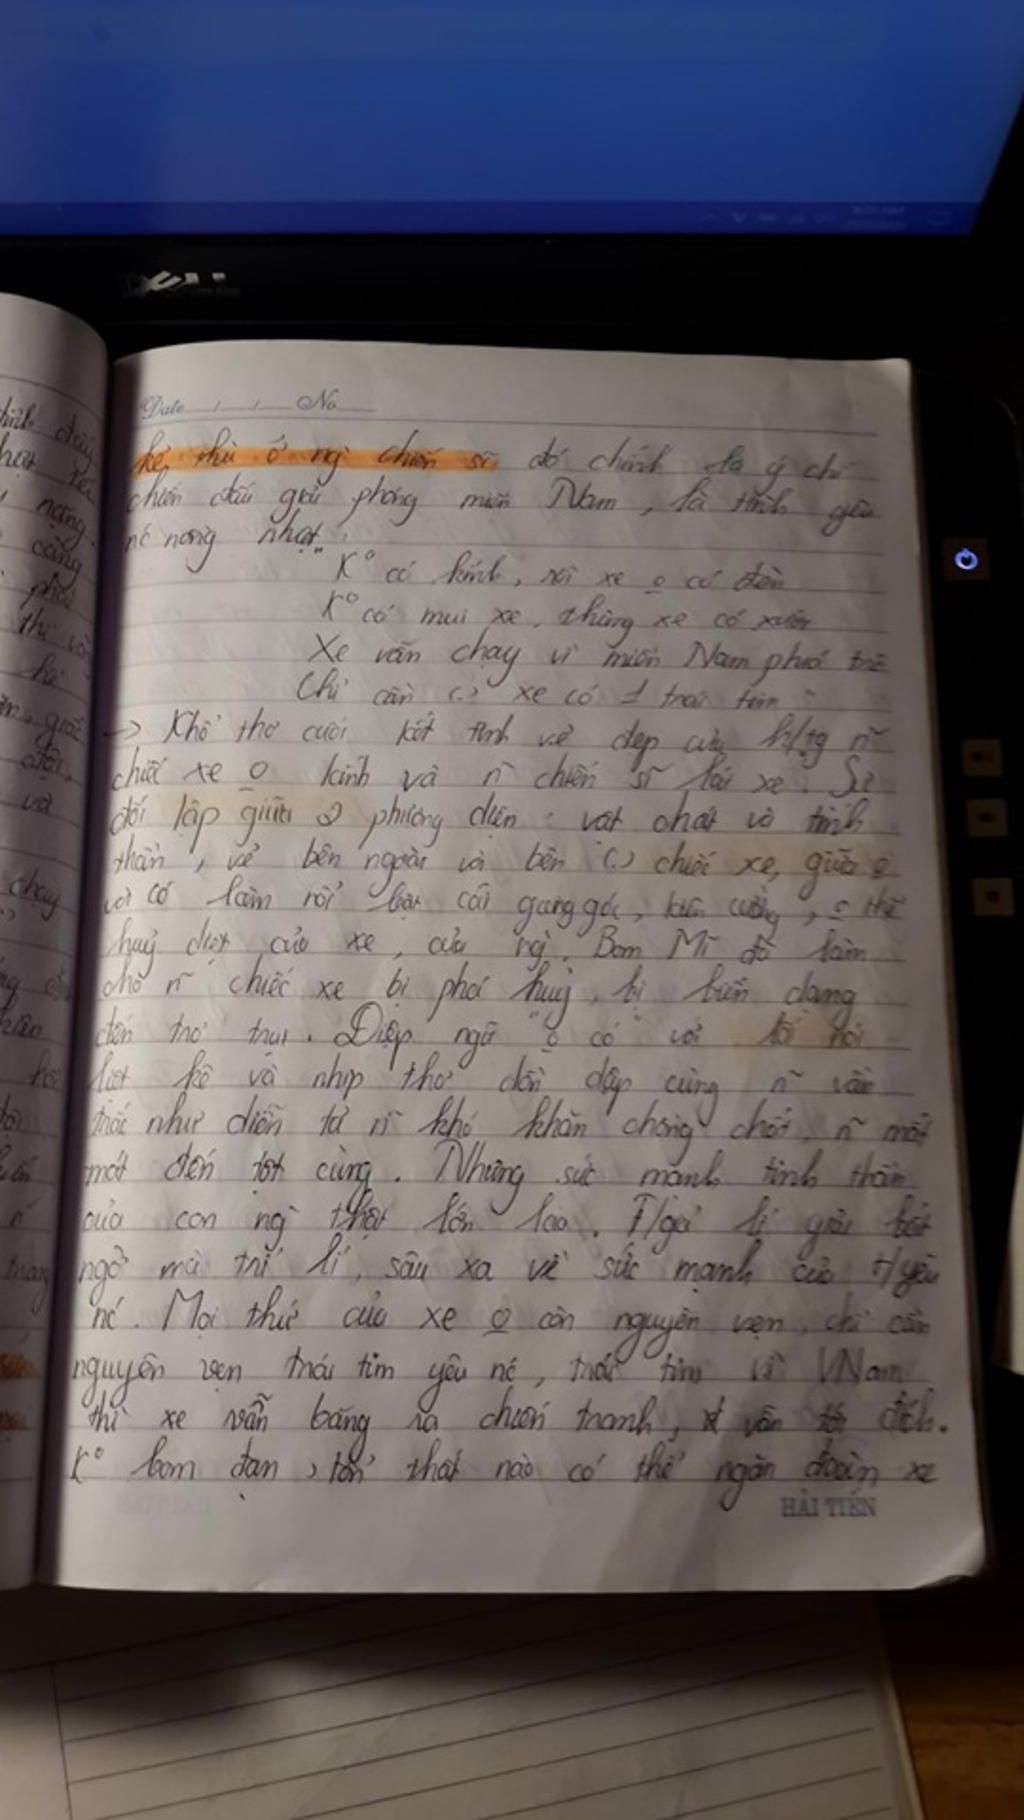 DELL
Date / / No
kẻ thù ở ng` chiến sĩ đó chính là ý chí
chiến đấu giải phóng miền Nam, là tình yêu
nc nồng nhạt:
"K° có kính, rồi xe o có đèn
K° có mui xe, thùng xe có xước
Xe vẫn chạy vì miền Nam phía trc
Chỉ cần (.) xe có 1 trái tim"
→ Khổ thơ cuối kết tinh vẻ đẹp của h/tg n~
chiếc xe o kính và n~ chiến sĩ lái xe. Sự
đối lập giữa 2 phương diện: vật chất và tinh
thần, vẻ bên ngoài và bên (.) chiếc xe, giữa o
và có làm nổi bật cái gang góc, kiên cường, o thể
huỷ diệt của xe, của ng`. Bom Mĩ đã làm
cho n~ chiếc xe bị phá huỷ, bị biến dạng
đến trơ trụi. Điệp ngữ "o có" với lối nói
liệt kê và nhịp thơ dồn dập cùng n~ vần
trắc như diễn tả n~ khó khăn chồng chất, n~ mất
mát đến tột cùng. Nhưng sức mạnh tinh thần
của con ng` thật lớn lao. T/giả lí giải bất
ngờ mà chí lí, sâu xa về sức mạnh của t/yêu
nc. Mọi thứ của xe o còn nguyên vẹn, chỉ cần
nguyên vẹn trái tim yêu nc, trái tim vì VNam
thì xe vẫn băng ra chiến tranh, vẫn tới đích.
K° bom đạn, tổn thất nào có thể ngăn đoàn xe
HẢI TIẾN